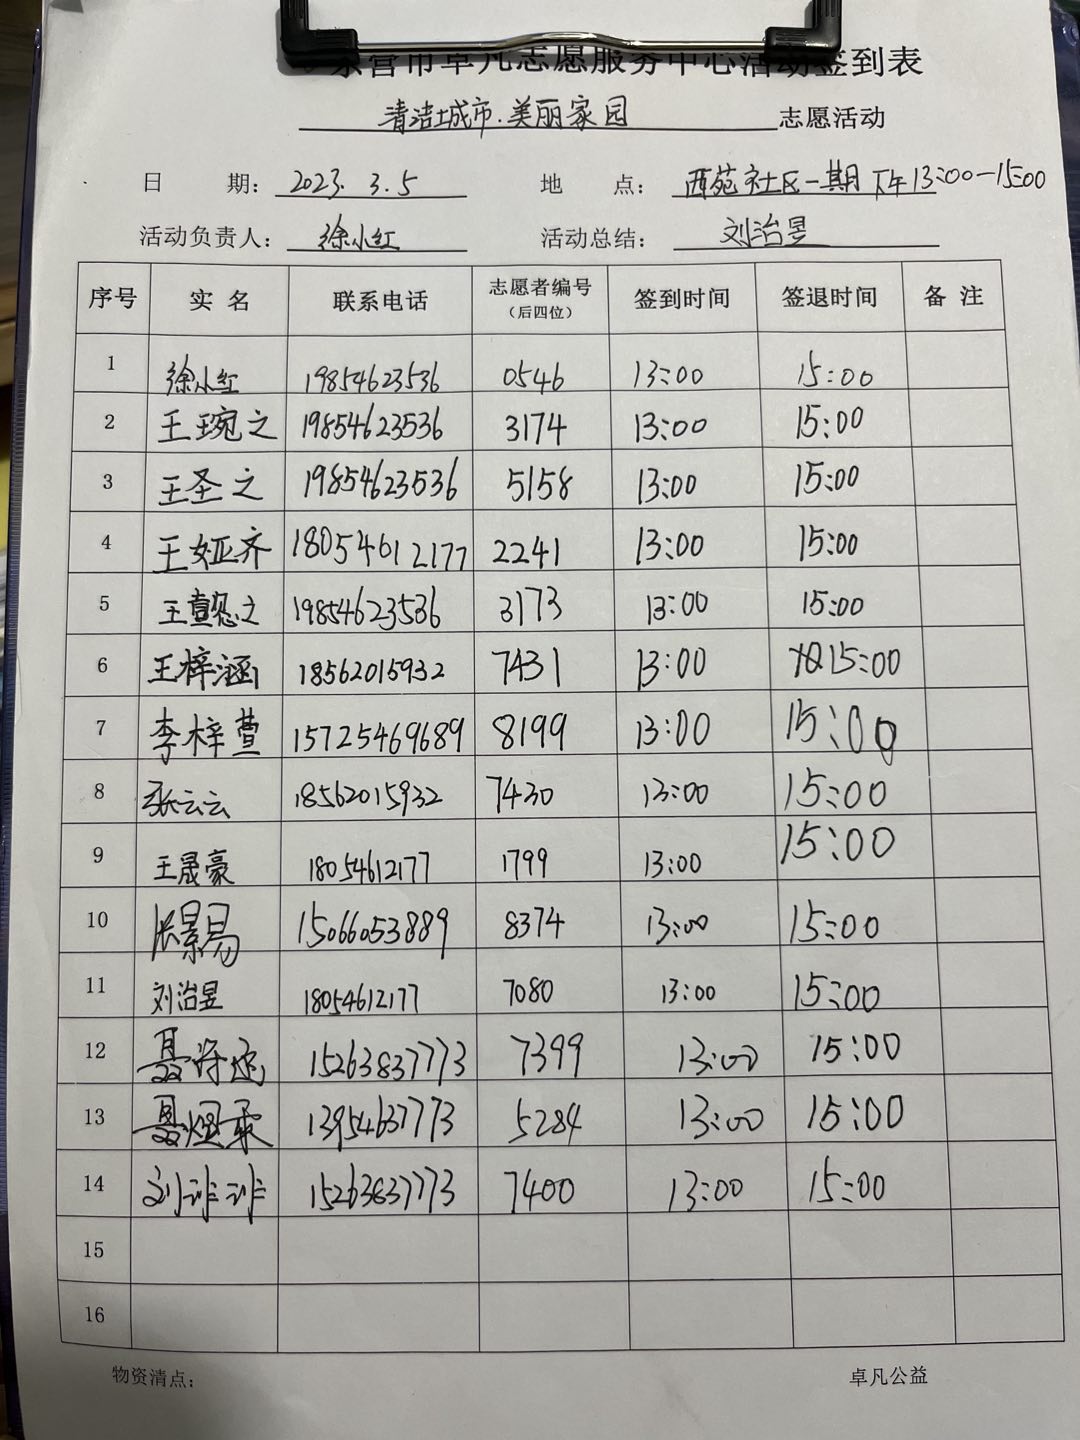 东营市卓凡志愿服务中心活动签到表
清洁城市.美丽家园 志愿活动
日 期: 2023.3.5 地 点: 西苑社区一期下午13:00-15:00
活动负责人: 徐小红 活动总结: 刘治昱
序号 实名 联系电话 志愿者编号(后四位) 签到时间 签退时间 备注
1 徐小红 19854623536 0546 13:00 15:00
2 王琬之 19854623536 3174 13:00 15:00
3 王圣之 19854623536 5158 13:00 15:00
4 王娅齐 18054612177 2241 13:00 15:00
5 王懿之 19854623536 3173 13:00 15:00
6 王梓涵 18562015932 7431 13:00 15:00
7 李梓萱 15725469689 8199 13:00 15:00
8 张云云 18562015932 7430 13:00 15:00
9 王晟豪 18054612177 1799 13:00 15:00
10 张景易 15066053889 8374 13:00 15:00
11 刘治昱 18054612177 7080 13:00 15:00
12 聂 15263837773 7399 13:00 15:00
13 聂煜 13954637773 5284 13:00 15:00
14 刘 15263837773 7400 13:00 15:00
15
16
物资清点: 卓凡公益